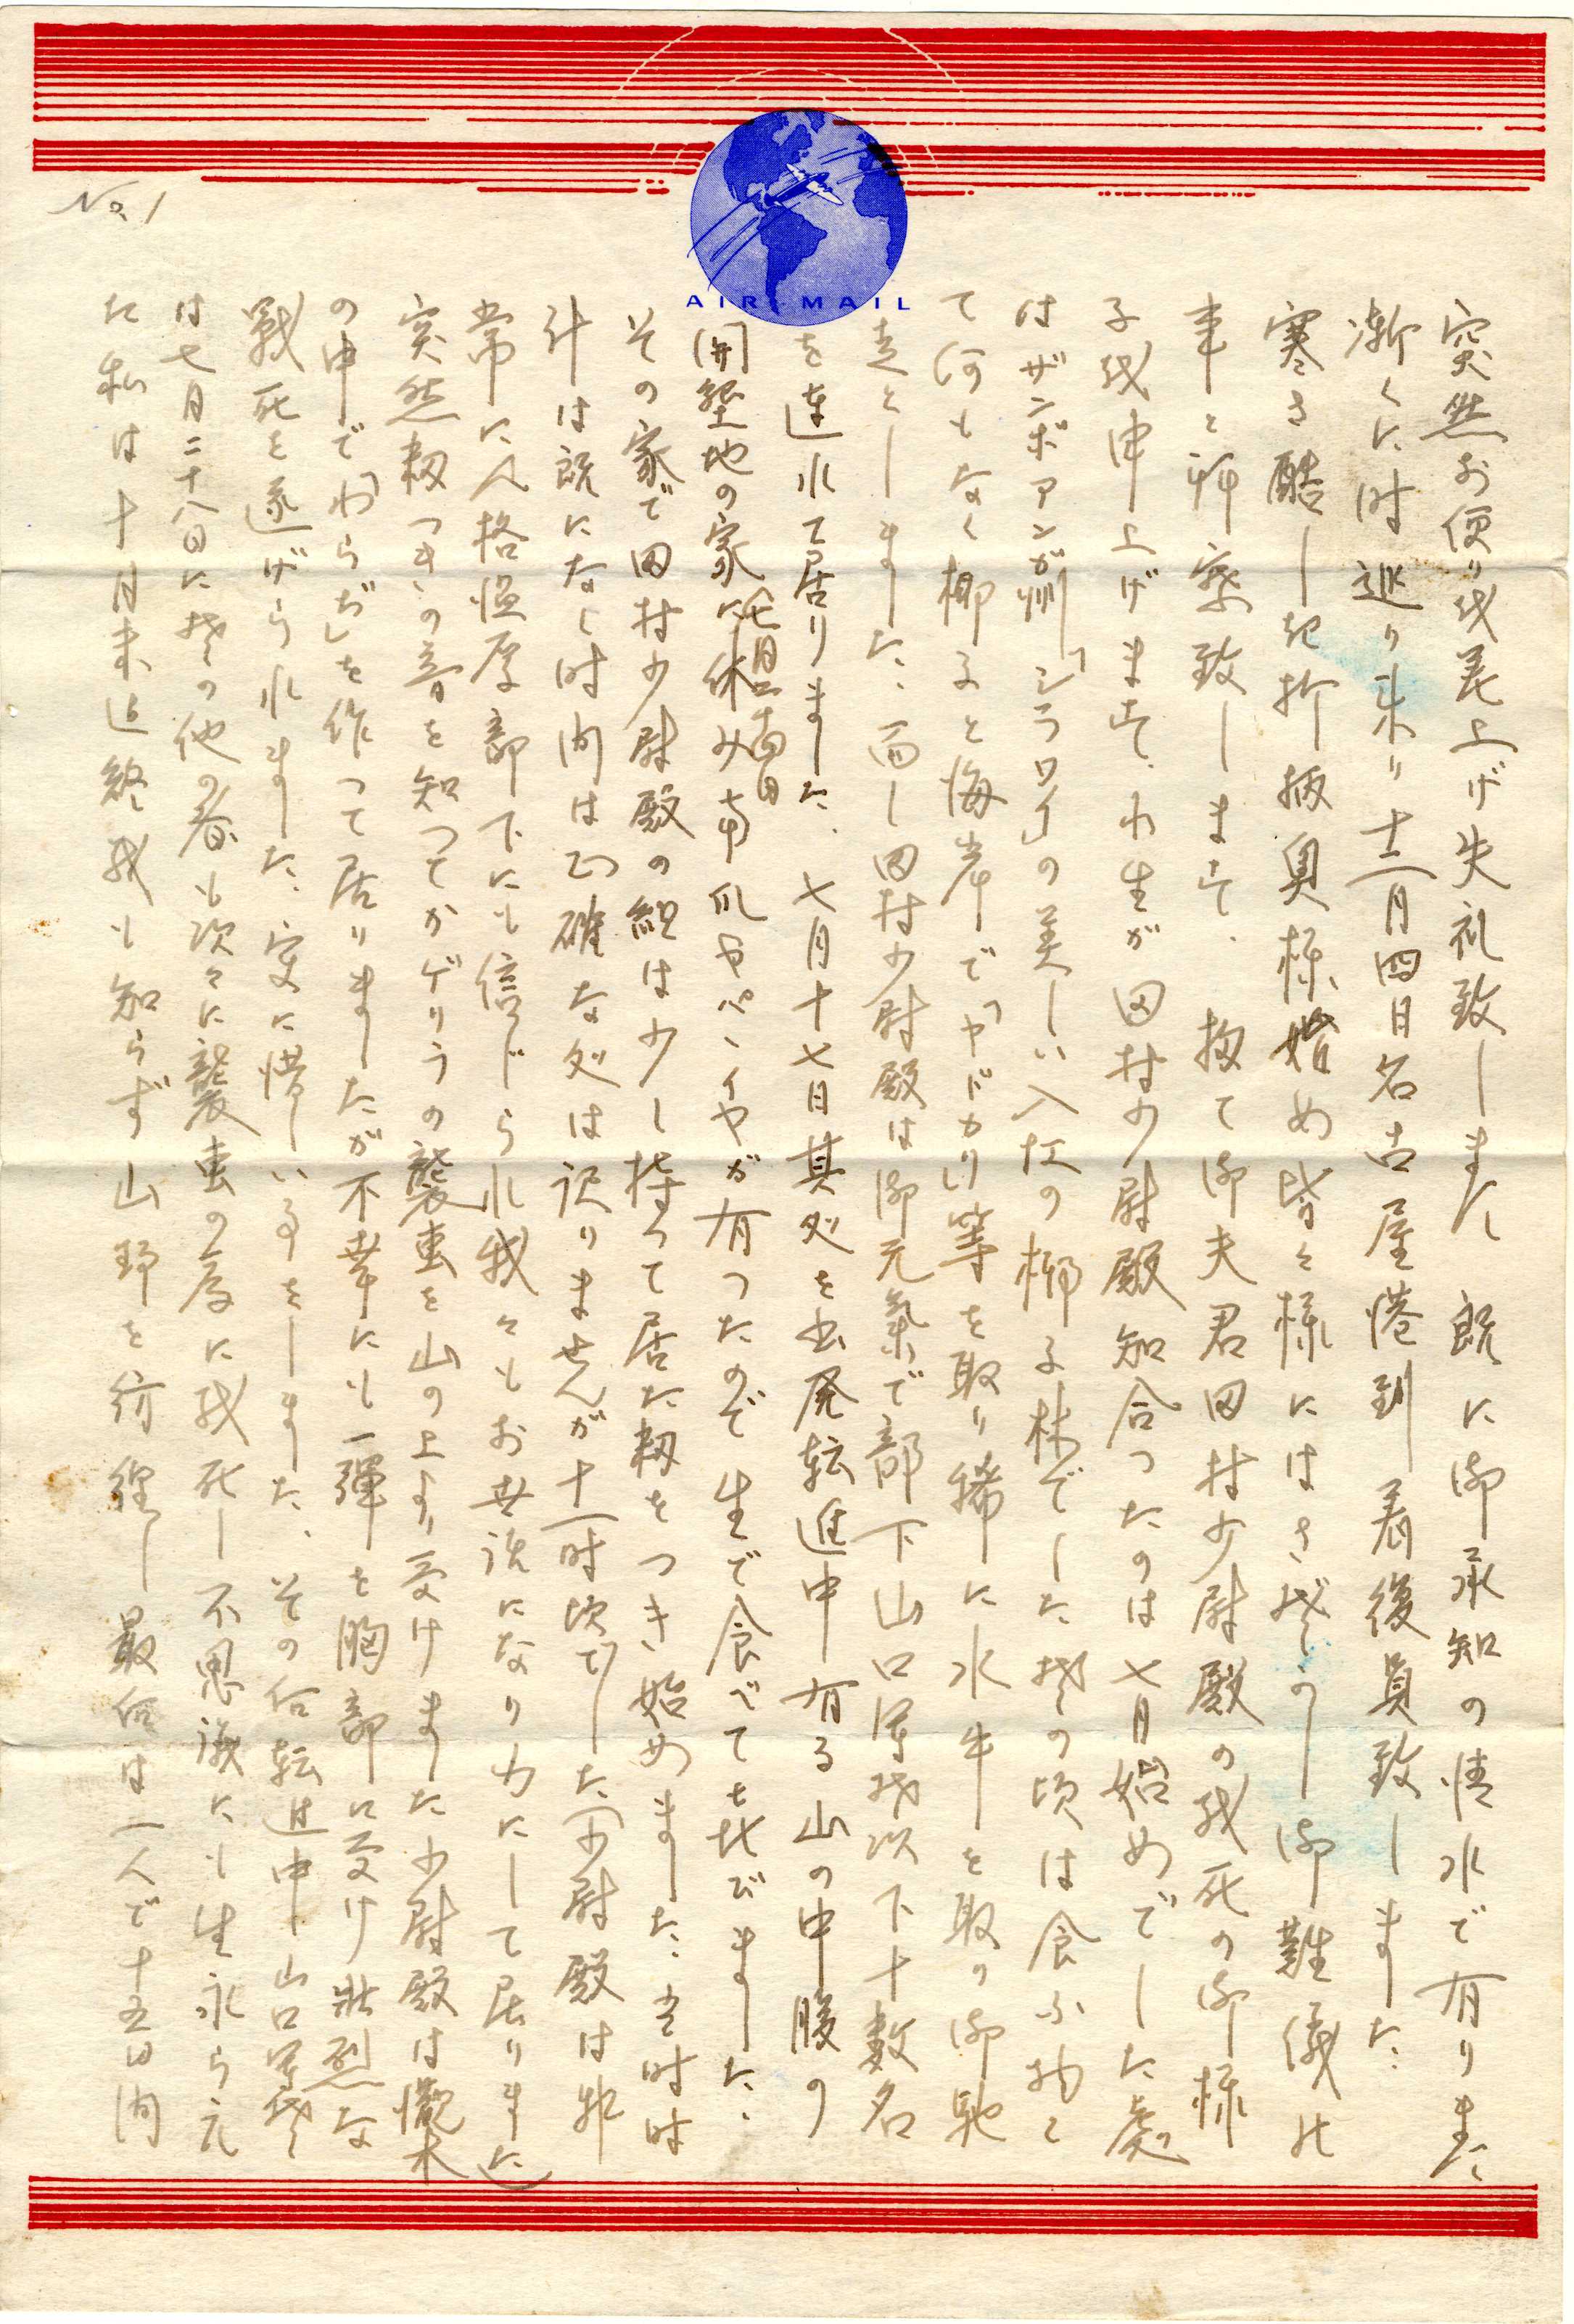 AIR MAIL
No.1
突然お便り致差上げ失礼致しました 既に御承知の情水で有りました
漸くに時巡り来り十二月四日名古屋港到着後員致しました
寒さ酷しき折柄奥様始め皆々様にはさぞかし御難儀の
事と御察致します 拠て御夫君田村少尉殿の戦死の御様
子致申上げます 小生が田村少尉殿知合つたのは七月始めでした處
はザンボアンガ州「シラワイ」の美しい入江の椰子林でした 其の頃は食ふ物と
て何もなく椰子と海岸で「ヤドカリ」等を取り稀に水牛を取り御馳
走としました 而し田村少尉殿は御元氣で部下山口軍曹以下十数名
を連れて居りました 七月十七日其処を出発転進中有る山の中腹の
開墾地の家に休み南瓜やパパイヤが有つたので生で食べて喜びました
(七月二十四日)
その家で田村少尉殿の組は少し持つて居た籾をつき始めました 当時時
計は既になく時間は正確な処は訳りませんが十一時頃でした(少尉殿は非
常に人格温厚部下にも信じられ我々もお世話になり力にして居りました)
突然籾つきの音を知つてかゲリラの襲撃を山の上より受けました 少尉殿は灌木
の中で「わらぢ」を作つて居りましたが不幸にも一彈を胸部に受け壮烈な
戰死を遂げられました 実に惜しい事をしました その后転進中山口軍曹
は七月二十八日に其の他の者も次々に襲撃の度に戦死し不思議にも生永らえ
た私は十月末迄終戦も知らず山野を彷徨し最后は一人で十五日間